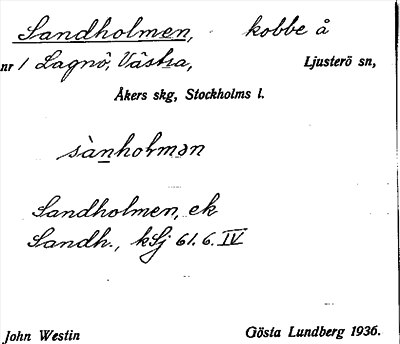 Sandholmen, kobbe å
nr 1 Lagnö, Västra, Ljusterö sn,
Åkers skg, Stockholms l.
sànholmən
Sandholmen, ek
Sandh., kSj 61.6.IV
John Westin Gösta Lundberg 1936.